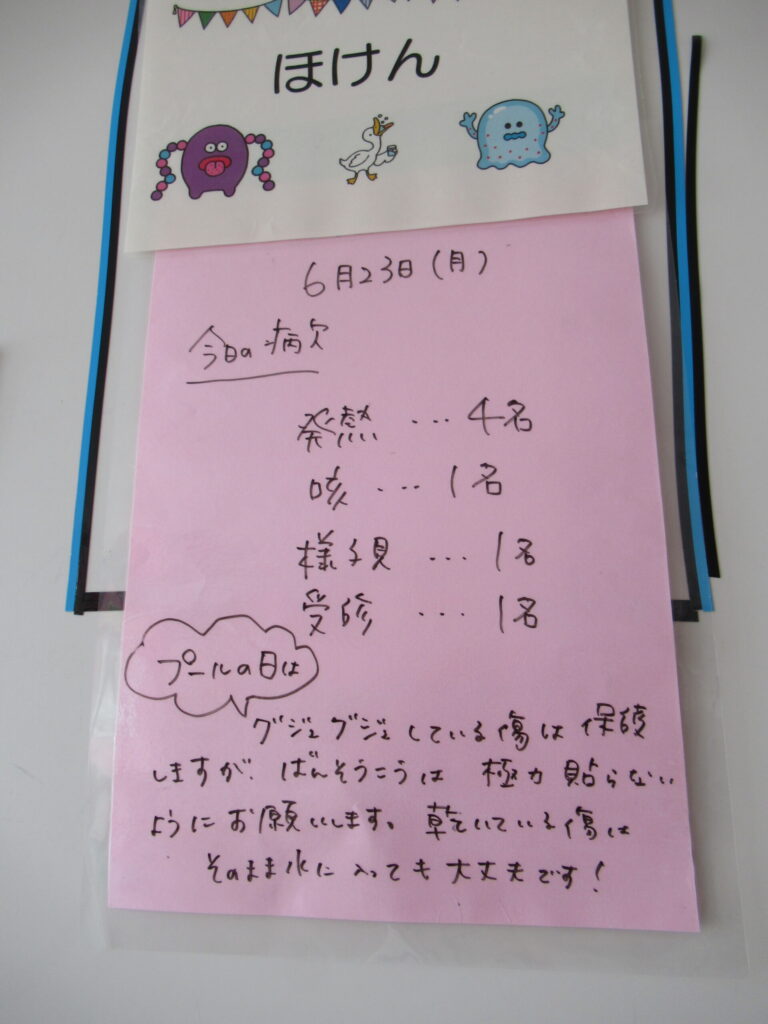 ほけん
6月23日(月)
今日の病欠
発熱 … 4名
咳 … 1名
様子見 … 1名
受診 … 1名
プールの日は
グジュグジュしている傷は保護
しますが、ばんそうこうは極力貼らない
ようにお願いします。乾いている傷は
そのまま水に入っても大丈夫です!